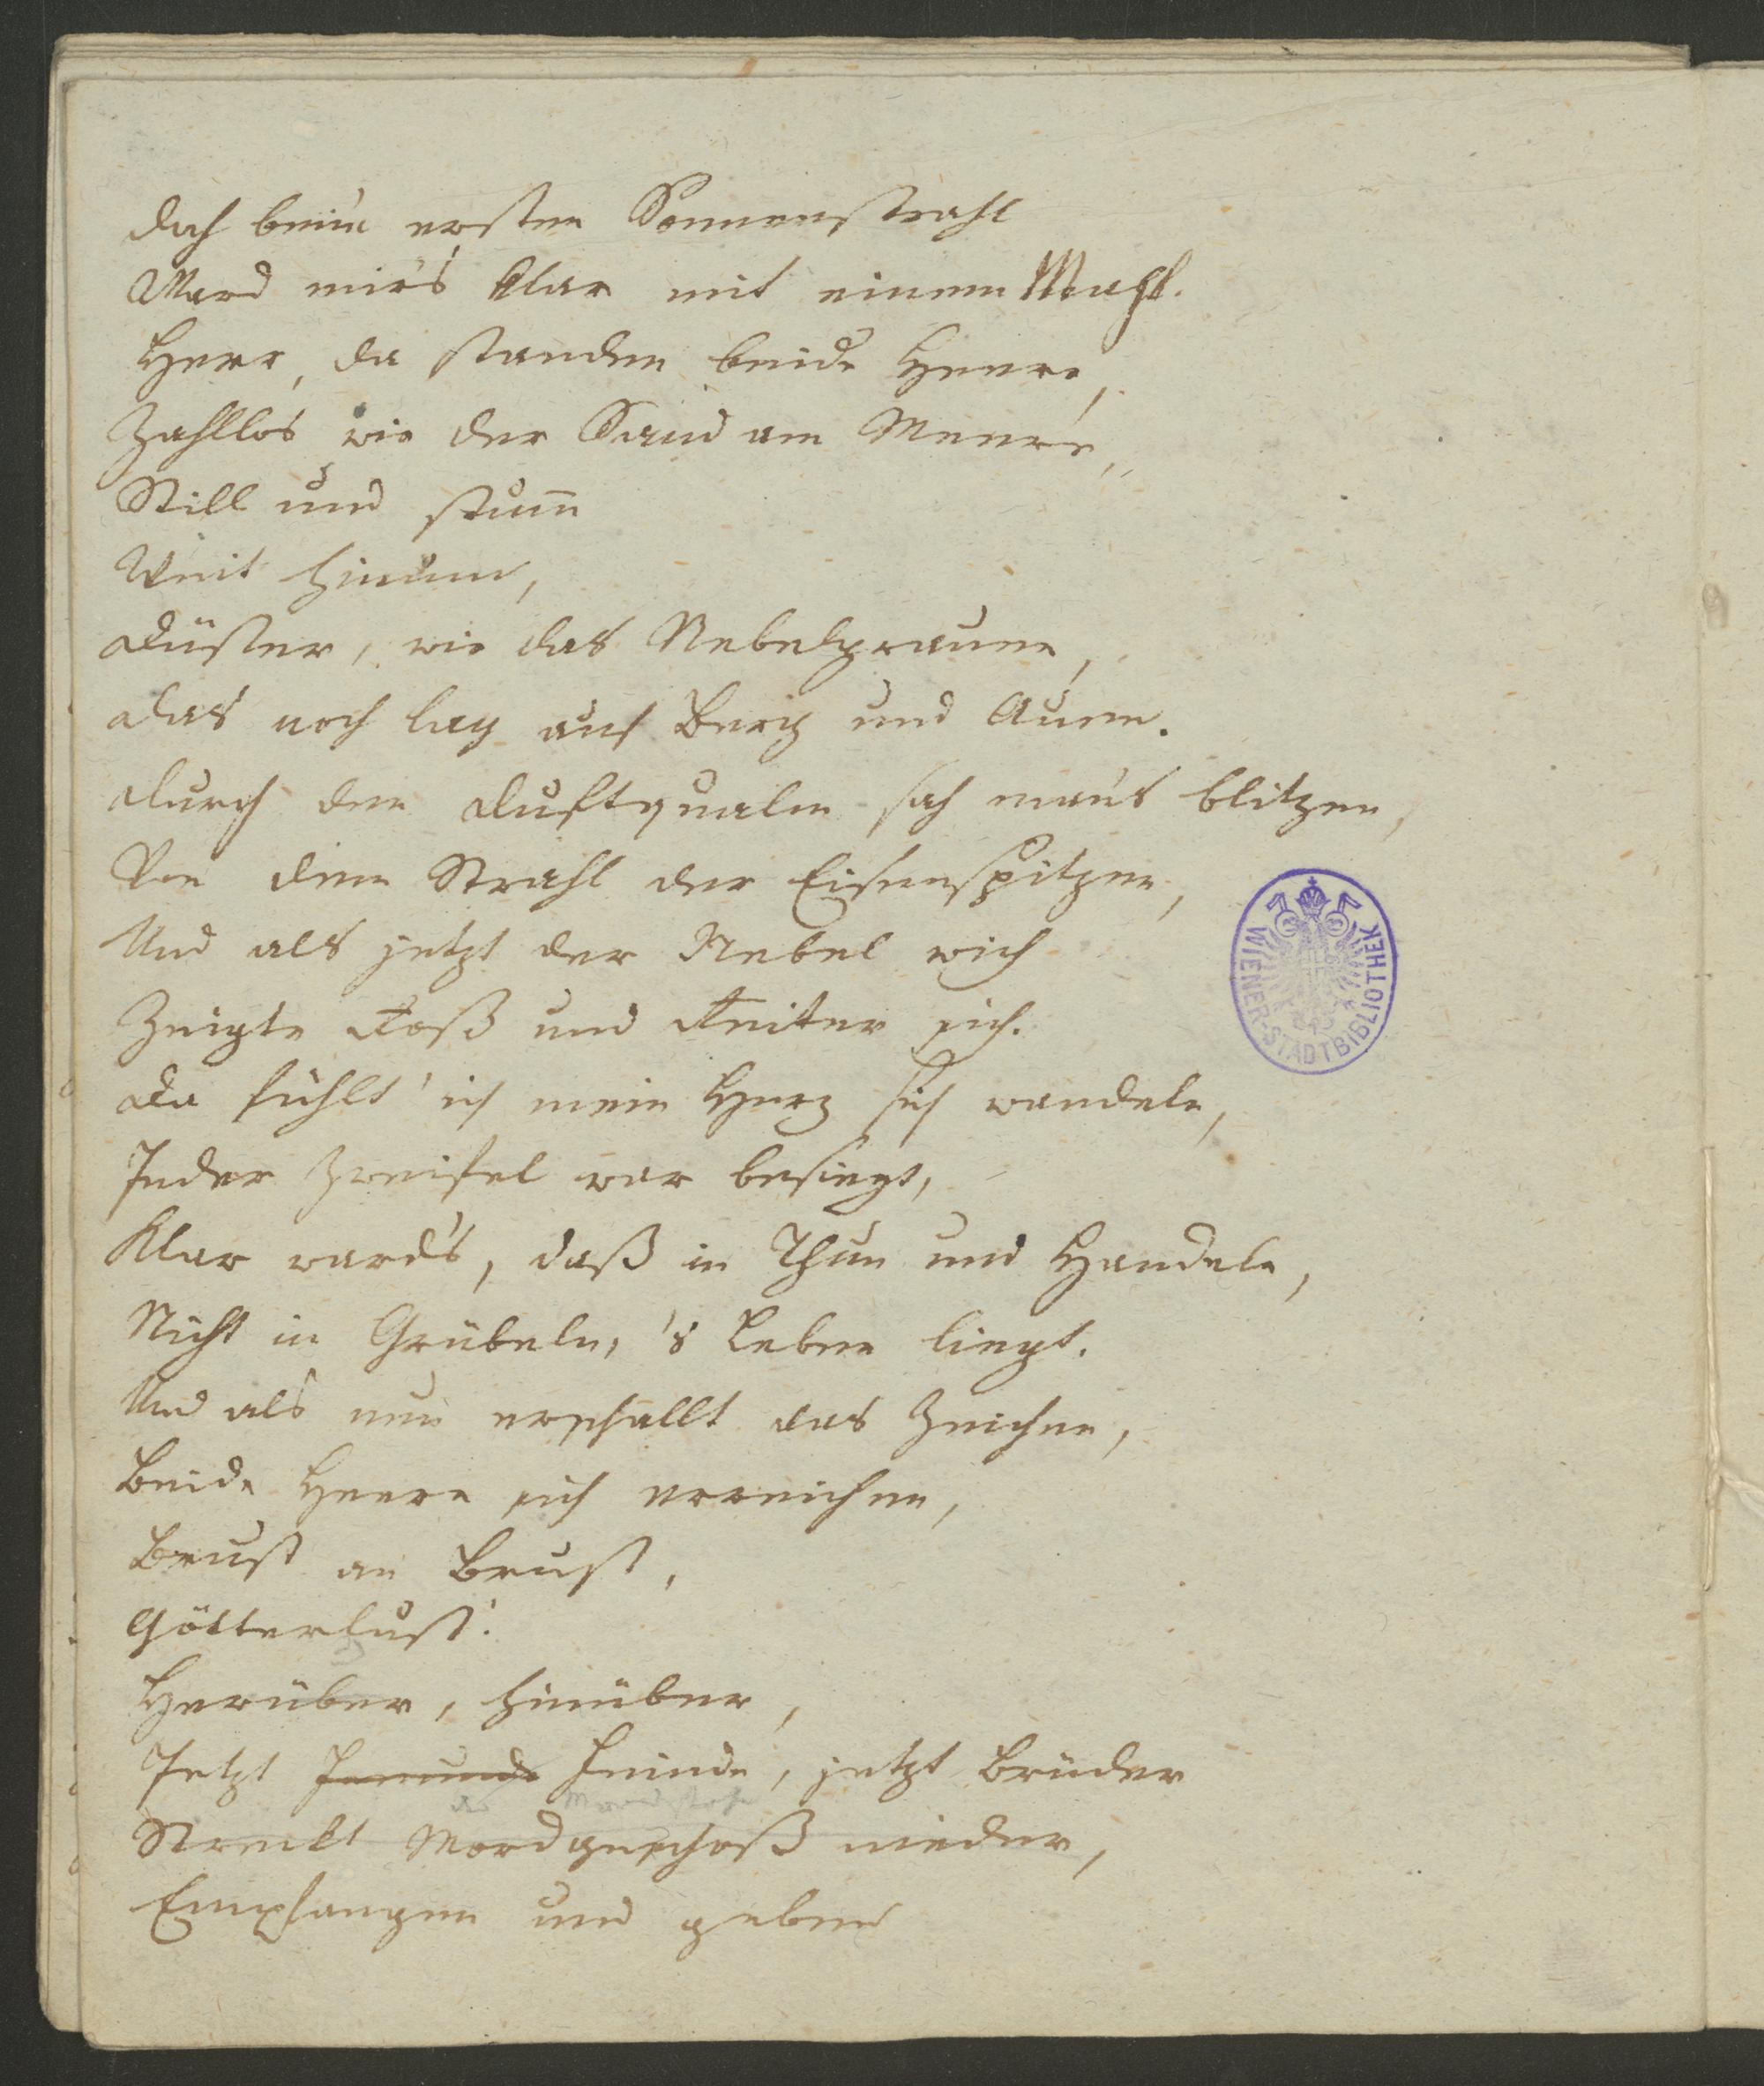 Doch beim ersten Sonnenstrahl
Ward mir's klar mit einem Mahl.
Herr, da standen beide Heere,
Zahllos wie der Sand am Meere,
Still und stum̄
Weit hinum,
Düster, wie das Nebelgrauen,
Das noch lag auf Berg und Auen.
Durch den Duftqualm sah man's blitzen,
Von dem Strahl der Eisenspitzen,
Und als jetzt der Nebel wich
Zeigte Roß und Reiter sich.
Da fühlt' ich mein Herz sich wandeln,
Jeder Zweifel war besiegt,
Klar ward's, daß in Thun und Handeln,
Nicht in Grübeln, 's Leben liegt.
Und als nun erschallt das Zeichen,
Beide Heere sich erreichen,
Brust an Brust,
Götterlust!
Herüber, hinüber,
Jetzt Freunde Feinde, jetzt Brüder
Streckt Mordgeschoß nieder,
Empfangen und geben
WIENER-STADTBIBLIOTHEK